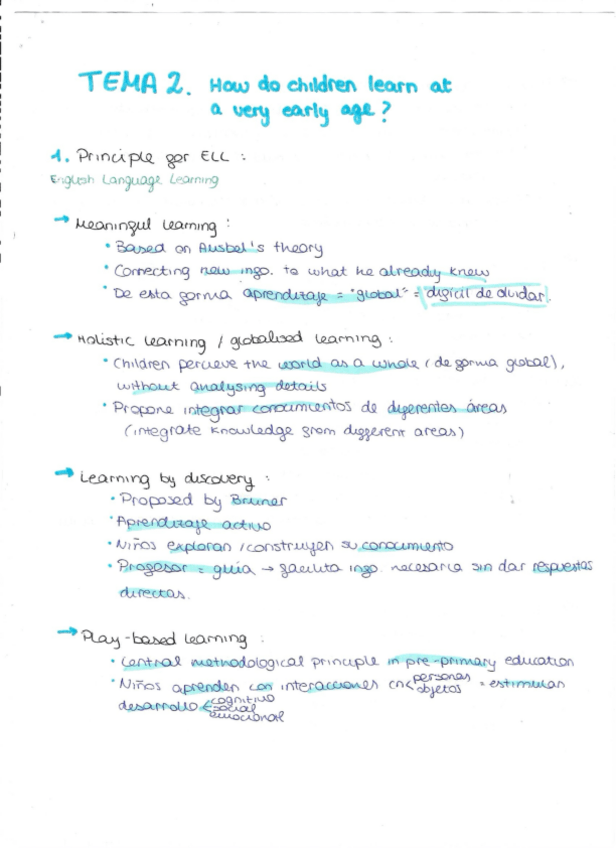 TEMA 2. How do children learn at
a very early age?
1. Principle for ELL :
English Language Learning
→ Meaningul learning :
• Based on Ausbel's theory
• Connecting new info. to what he already knew
• De esta forma aprendizaje = "global" = difícil de olvidar.
→ Holistic learning / globalised learning :
• Children percieve the world as a whole (de forma global),
without analysing details
• Propone integrar conocimientos de diferentes áreas
(integrate knowledge from different areas)
→ Learning by discovery :
• Proposed by Bruner
• Aprendizaje activo
• Niños exploran / construyen su conocimiento
• Profesor = guía → facilita info. necesaria sin dar respuestas
directas.
→ Play-based learning :
• Central methodological principle in pre-primary education
• Niños aprenden con interacciones cn < personas
objetos = estimulan
desarrollo < cognitivo
social
emocional